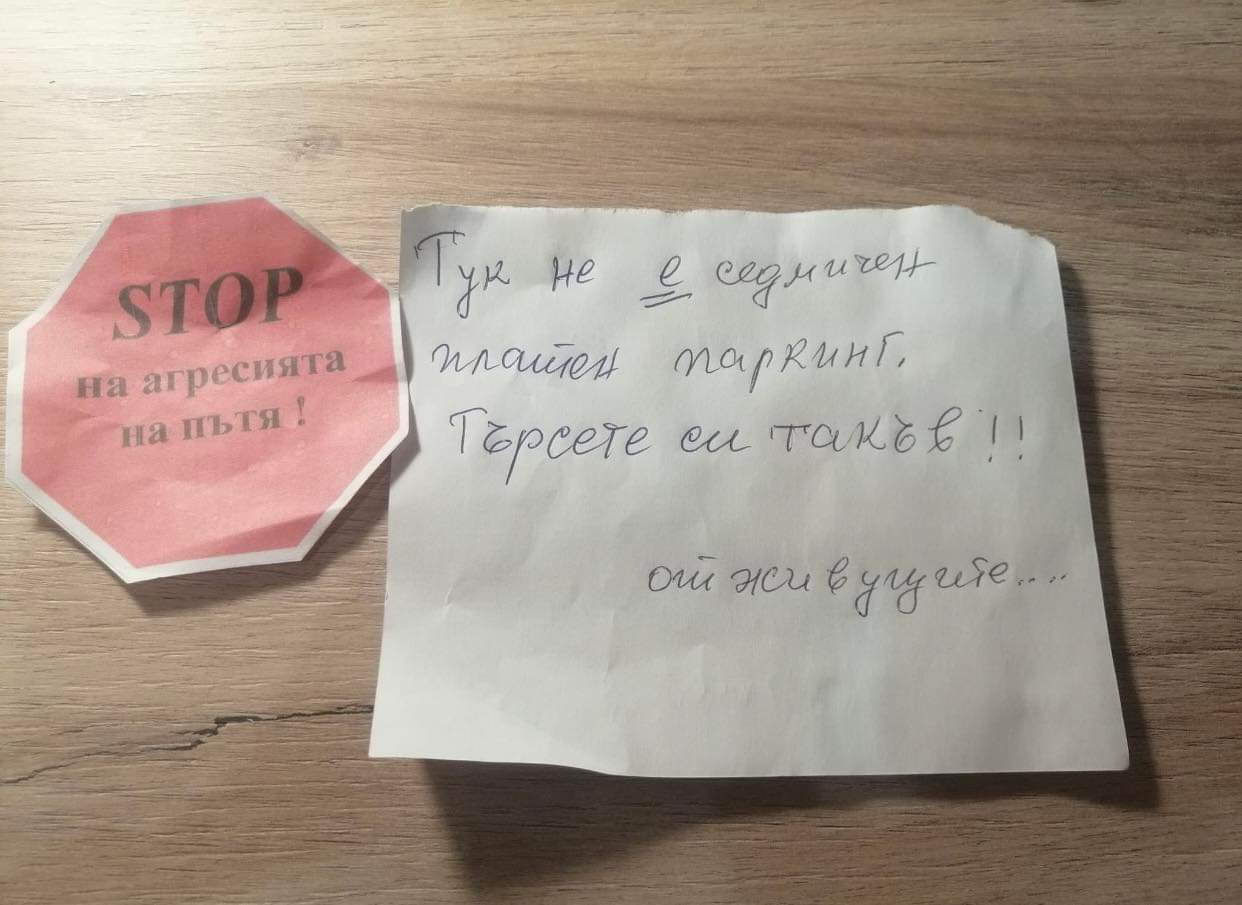 STOP
на агресията
на пътя !
Тук не е седмичен
платен паркинг.
Търсете си такъв !!
от живущите....